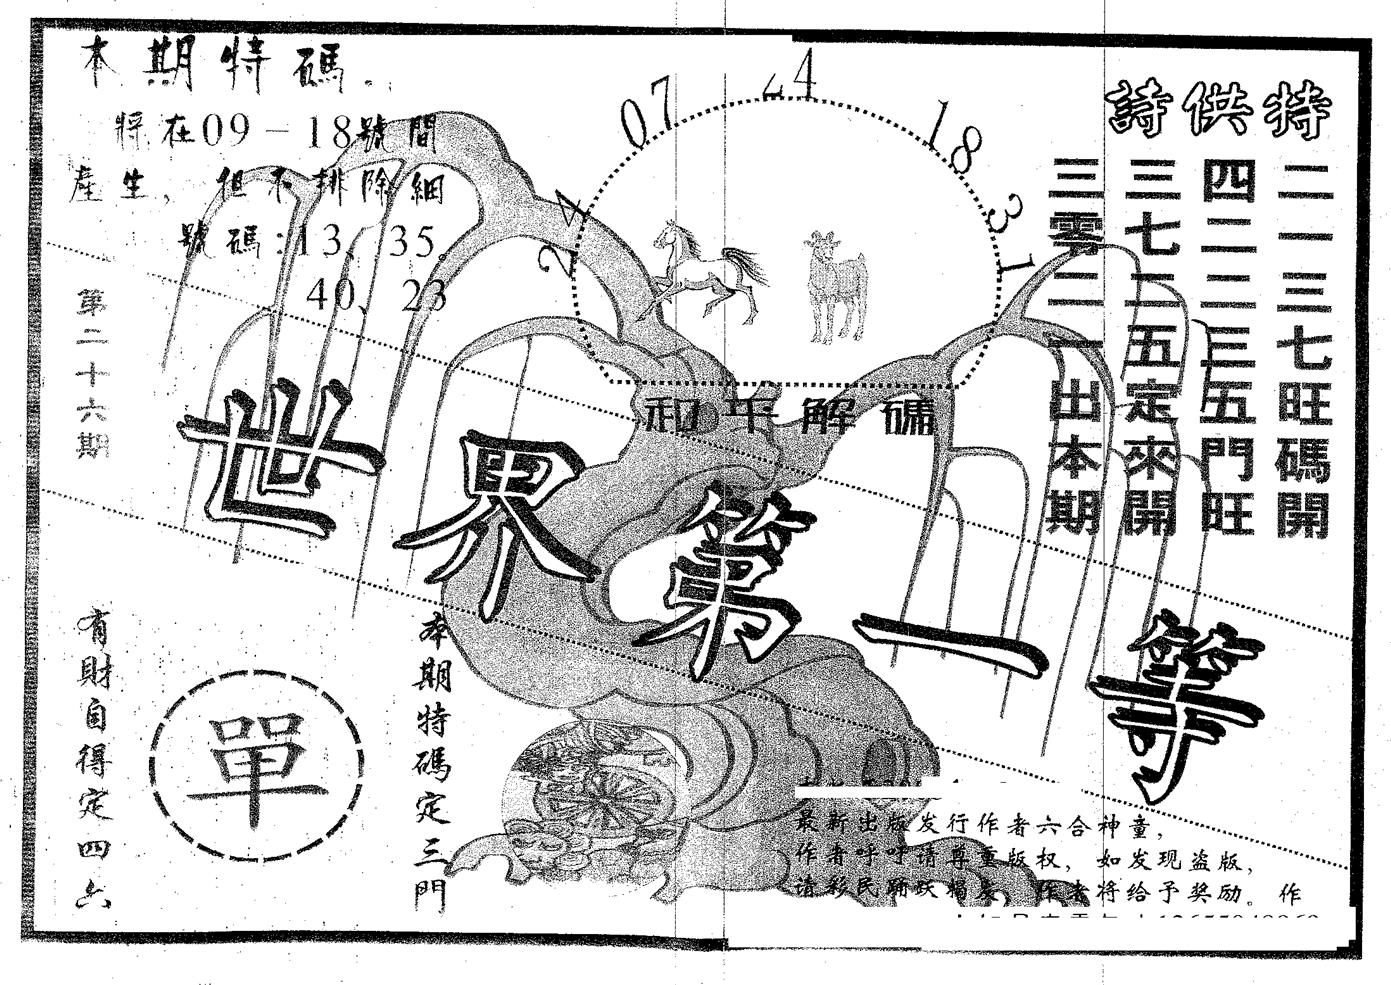 本期特碼
將在09－18號間
產生，但不排除細
號碼：13、35。
40、23
第二十六期
07
24
18
31
24
特供詩
二一三七旺碼開
四二二三五門旺
三七二五定來開
三零二一出本期
和平解碼
世界第一等
有財自得定四六
單
本期特碼定三門
最新出版发行作者六合神童，
作者呼吁请尊重版权，如发现盗版，
请彩民踊跃揭发，作者将给予奖励。作